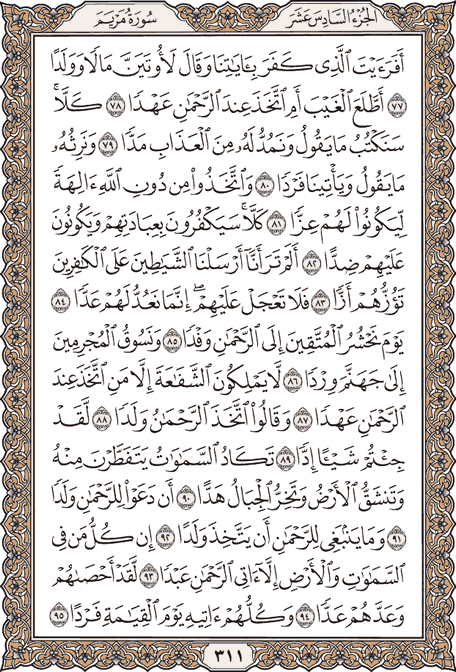 الجزء السادس عشر
سورة مريم
أَفَرَءَيْتَ ٱلَّذِى كَفَرَ بِـَٔايَـٰتِنَا وَقَالَ لَأُوتَيَنَّ مَالًا وَوَلَدًا
٧٧ أَطَّلَعَ ٱلْغَيْبَ أَمِ ٱتَّخَذَ عِندَ ٱلرَّحْمَـٰنِ عَهْدًا ٧٨ كَلَّا ۚ
سَنَكْتُبُ مَا يَقُولُ وَنَمُدُّ لَهُۥ مِنَ ٱلْعَذَابِ مَدًّا ٧٩ وَنَرِثُهُۥ
مَا يَقُولُ وَيَأْتِينَا فَرْدًا ٨٠ وَٱتَّخَذُوا۟ مِن دُونِ ٱللَّهِ ءَالِهَةً
لِّيَكُونُوا۟ لَهُمْ عِزًّا ٨١ كَلَّا ۚ سَيَكْفُرُونَ بِعِبَادَتِهِمْ وَيَكُونُونَ
عَلَيْهِمْ ضِدًّا ٨٢ أَلَمْ تَرَ أَنَّآ أَرْسَلْنَا ٱلشَّيَـٰطِينَ عَلَى ٱلْكَـٰفِرِينَ
تَؤُزُّهُمْ أَزًّا ٨٣ فَلَا تَعْجَلْ عَلَيْهِمْ ۖ إِنَّمَا نَعُدُّ لَهُمْ عَدًّا ٨٤
يَوْمَ نَحْشُرُ ٱلْمُتَّقِينَ إِلَى ٱلرَّحْمَـٰنِ وَفْدًا ٨٥ وَنَسُوقُ ٱلْمُجْرِمِينَ
إِلَىٰ جَهَنَّمَ وِرْدًا ٨٦ لَّا يَمْلِكُونَ ٱلشَّفَـٰعَةَ إِلَّا مَنِ ٱتَّخَذَ عِندَ
ٱلرَّحْمَـٰنِ عَهْدًا ٨٧ وَقَالُوا۟ ٱتَّخَذَ ٱلرَّحْمَـٰنُ وَلَدًا ٨٨ لَّقَدْ
جِئْتُمْ شَيْـًٔا إِدًّا ٨٩ تَكَادُ ٱلسَّمَـٰوَٰتُ يَتَفَطَّرْنَ مِنْهُ
وَتَنشَقُّ ٱلْأَرْضُ وَتَخِرُّ ٱلْجِبَالُ هَدًّا ٩٠ أَن دَعَوْا۟ لِلرَّحْمَـٰنِ وَلَدًا
٩١ وَمَا يَنۢبَغِى لِلرَّحْمَـٰنِ أَن يَتَّخِذَ وَلَدًا ٩٢ إِن كُلُّ مَن فِى
ٱلسَّمَـٰوَٰتِ وَٱلْأَرْضِ إِلَّآ ءَاتِى ٱلرَّحْمَـٰنِ عَبْدًا ٩٣ لَّقَدْ أَحْصَىٰهُمْ
وَعَدَّهُمْ عَدًّا ٩٤ وَكُلُّهُمْ ءَاتِيهِ يَوْمَ ٱلْقِيَـٰمَةِ فَرْدًا ٩٥
٣١١